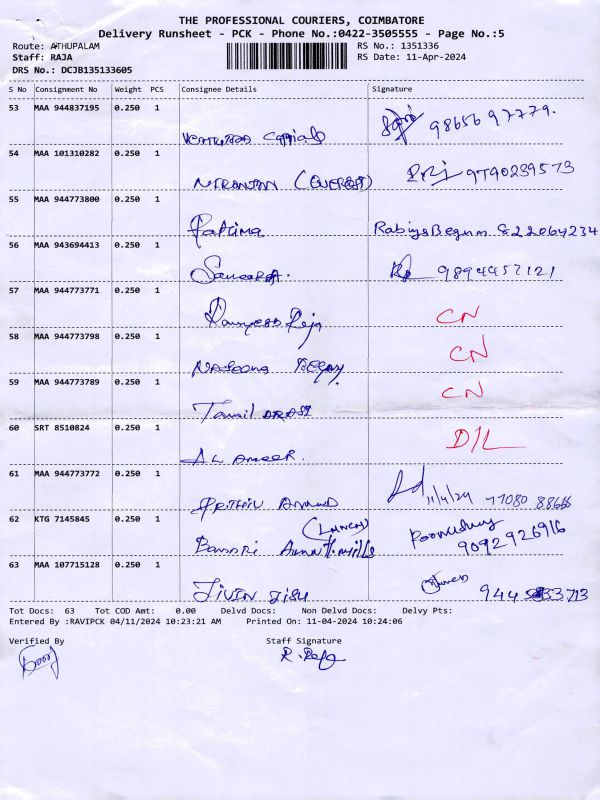 THE PROFESSIONAL COURIERS, COIMBATORE
Delivery Runsheet - PCK - Phone No.:0422-3505555 - Page No.:5
Route: ATHUPALAM
RS No.: 1351336
Staff: RAJA
RS Date: 11-Apr-2024
DRS No.: DCJB135133605
S No Consignment No Weight PCS Consignee Details Signature
53 MAA 944837195 0.250 1
9865697779.
54 MAA 101310282 0.250 1
NIRANJAN (EVEREST) 9790239573
55 MAA 944773800 0.250 1
Fatima Rabiya Begum 822064234
56 MAA 943694413 0.250 1
9894457121
57 MAA 944773771 0.250 1
Raja CN
58 MAA 944773798 0.250 1
CN
59 MAA 944773789 0.250 1
Tamil CN
60 SRT 8510824 0.250 1
AL AMEER. D/L
61 MAA 944773772 0.250 1
11/4/24
62 KTG 7145845 0.250 1
9092926916
63 MAA 107715128 0.250 1
JIVIN JISU
Tot Docs: 63 Tot COD Amt: 0.00 Delvd Docs: Non Delvd Docs: Delvy Pts:
Entered By :RAVIPCK 04/11/2024 10:23:21 AM Printed On: 11-04-2024 10:24:06
Verified By Staff Signature
R. Raja